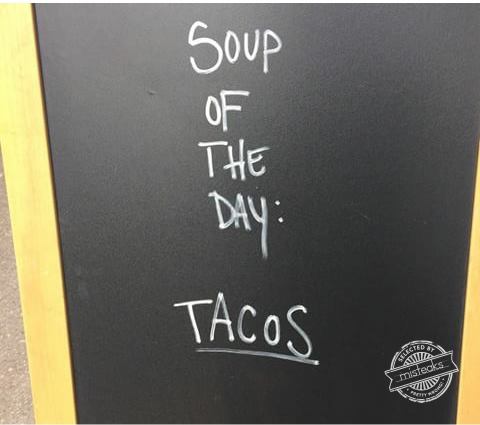 SOUP
OF
THE
DAY:
TACOS
SELECTED BY
...misteaks...
PRETTY WRONG!